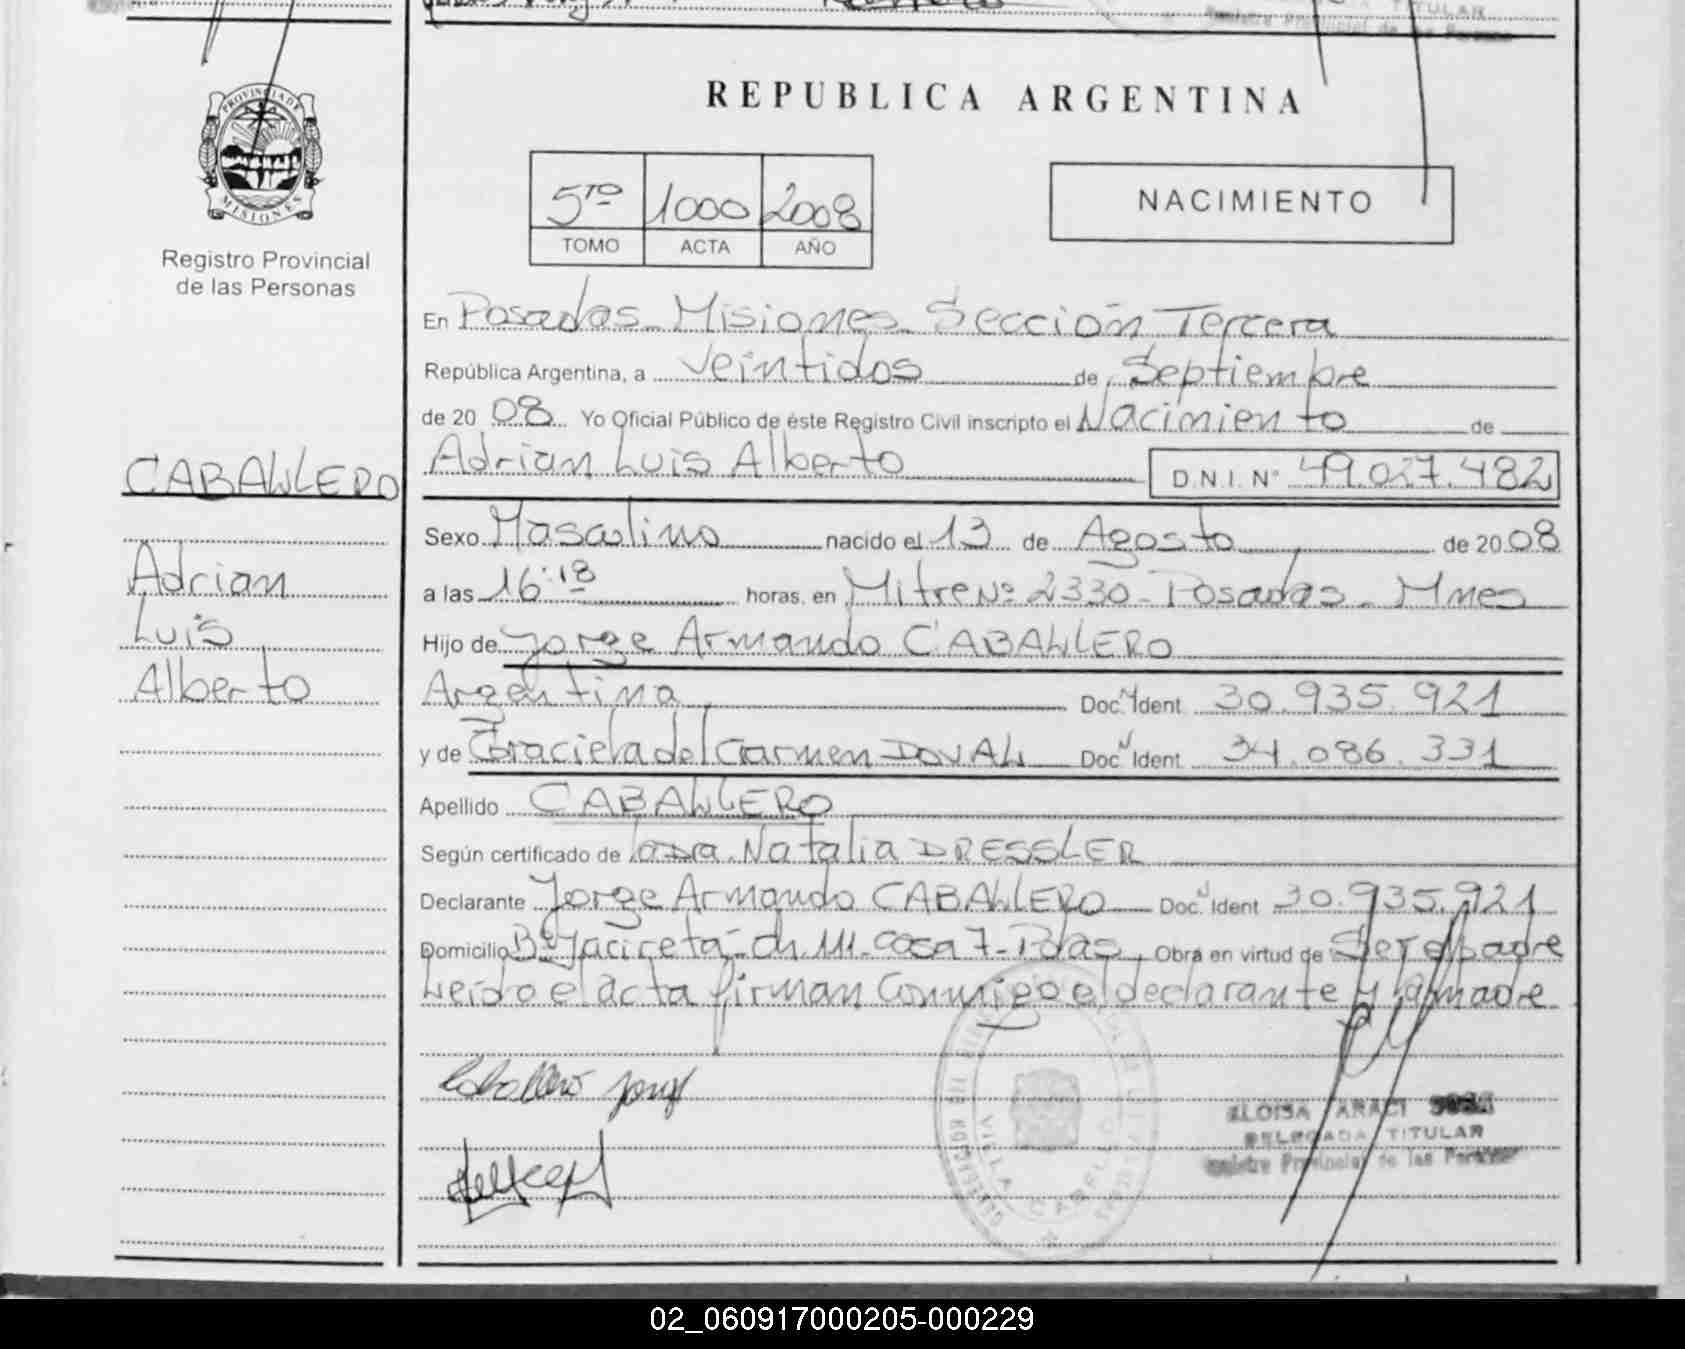 TITULAR
Registro Provincial de las Personas
PROVINCIA DE
MISIONES
Registro Provincial
de las Personas
REPUBLICA ARGENTINA
5TO 1000 2008
TOMO ACTA AÑO
NACIMIENTO
En Posadas Misiones Sección Tercera
República Argentina, a Veintidos de Septiembre
de 20 08 Yo Oficial Público de éste Registro Civil inscripto el Nacimiento de
CABALLERO
Adrian Luis Alberto D.N.I. N° 49.027.482
Sexo Masculino nacido el 13 de Agosto de 20 08
Adrian
a las 16:18 horas, en Mitre Nº 2330 - Posadas - Mnes
Luis
Hijo de Jorge Armando CABALLERO
Alberto
Argentina Doc. Ident 30.935.921
y de Graciela del Carmen DOVAL Doc. Ident 34.086.331
Apellido CABALLERO
Según certificado de Natalia DRESSLER
Declarante Jorge Armando CABALLERO Doc. Ident 30.935.921
Domicilio Bº Yaciretá - ch. 111 - casa 7 - Pdas Obra en virtud de Ser el padre
Leido el acta firman Conmigo el declarante y la madre
Caballero Jorge
ELOISA ARACI
DELEGADA TITULAR
Registro Provincial de las Personas
VILLA CABELLO
02_060917000205-000229